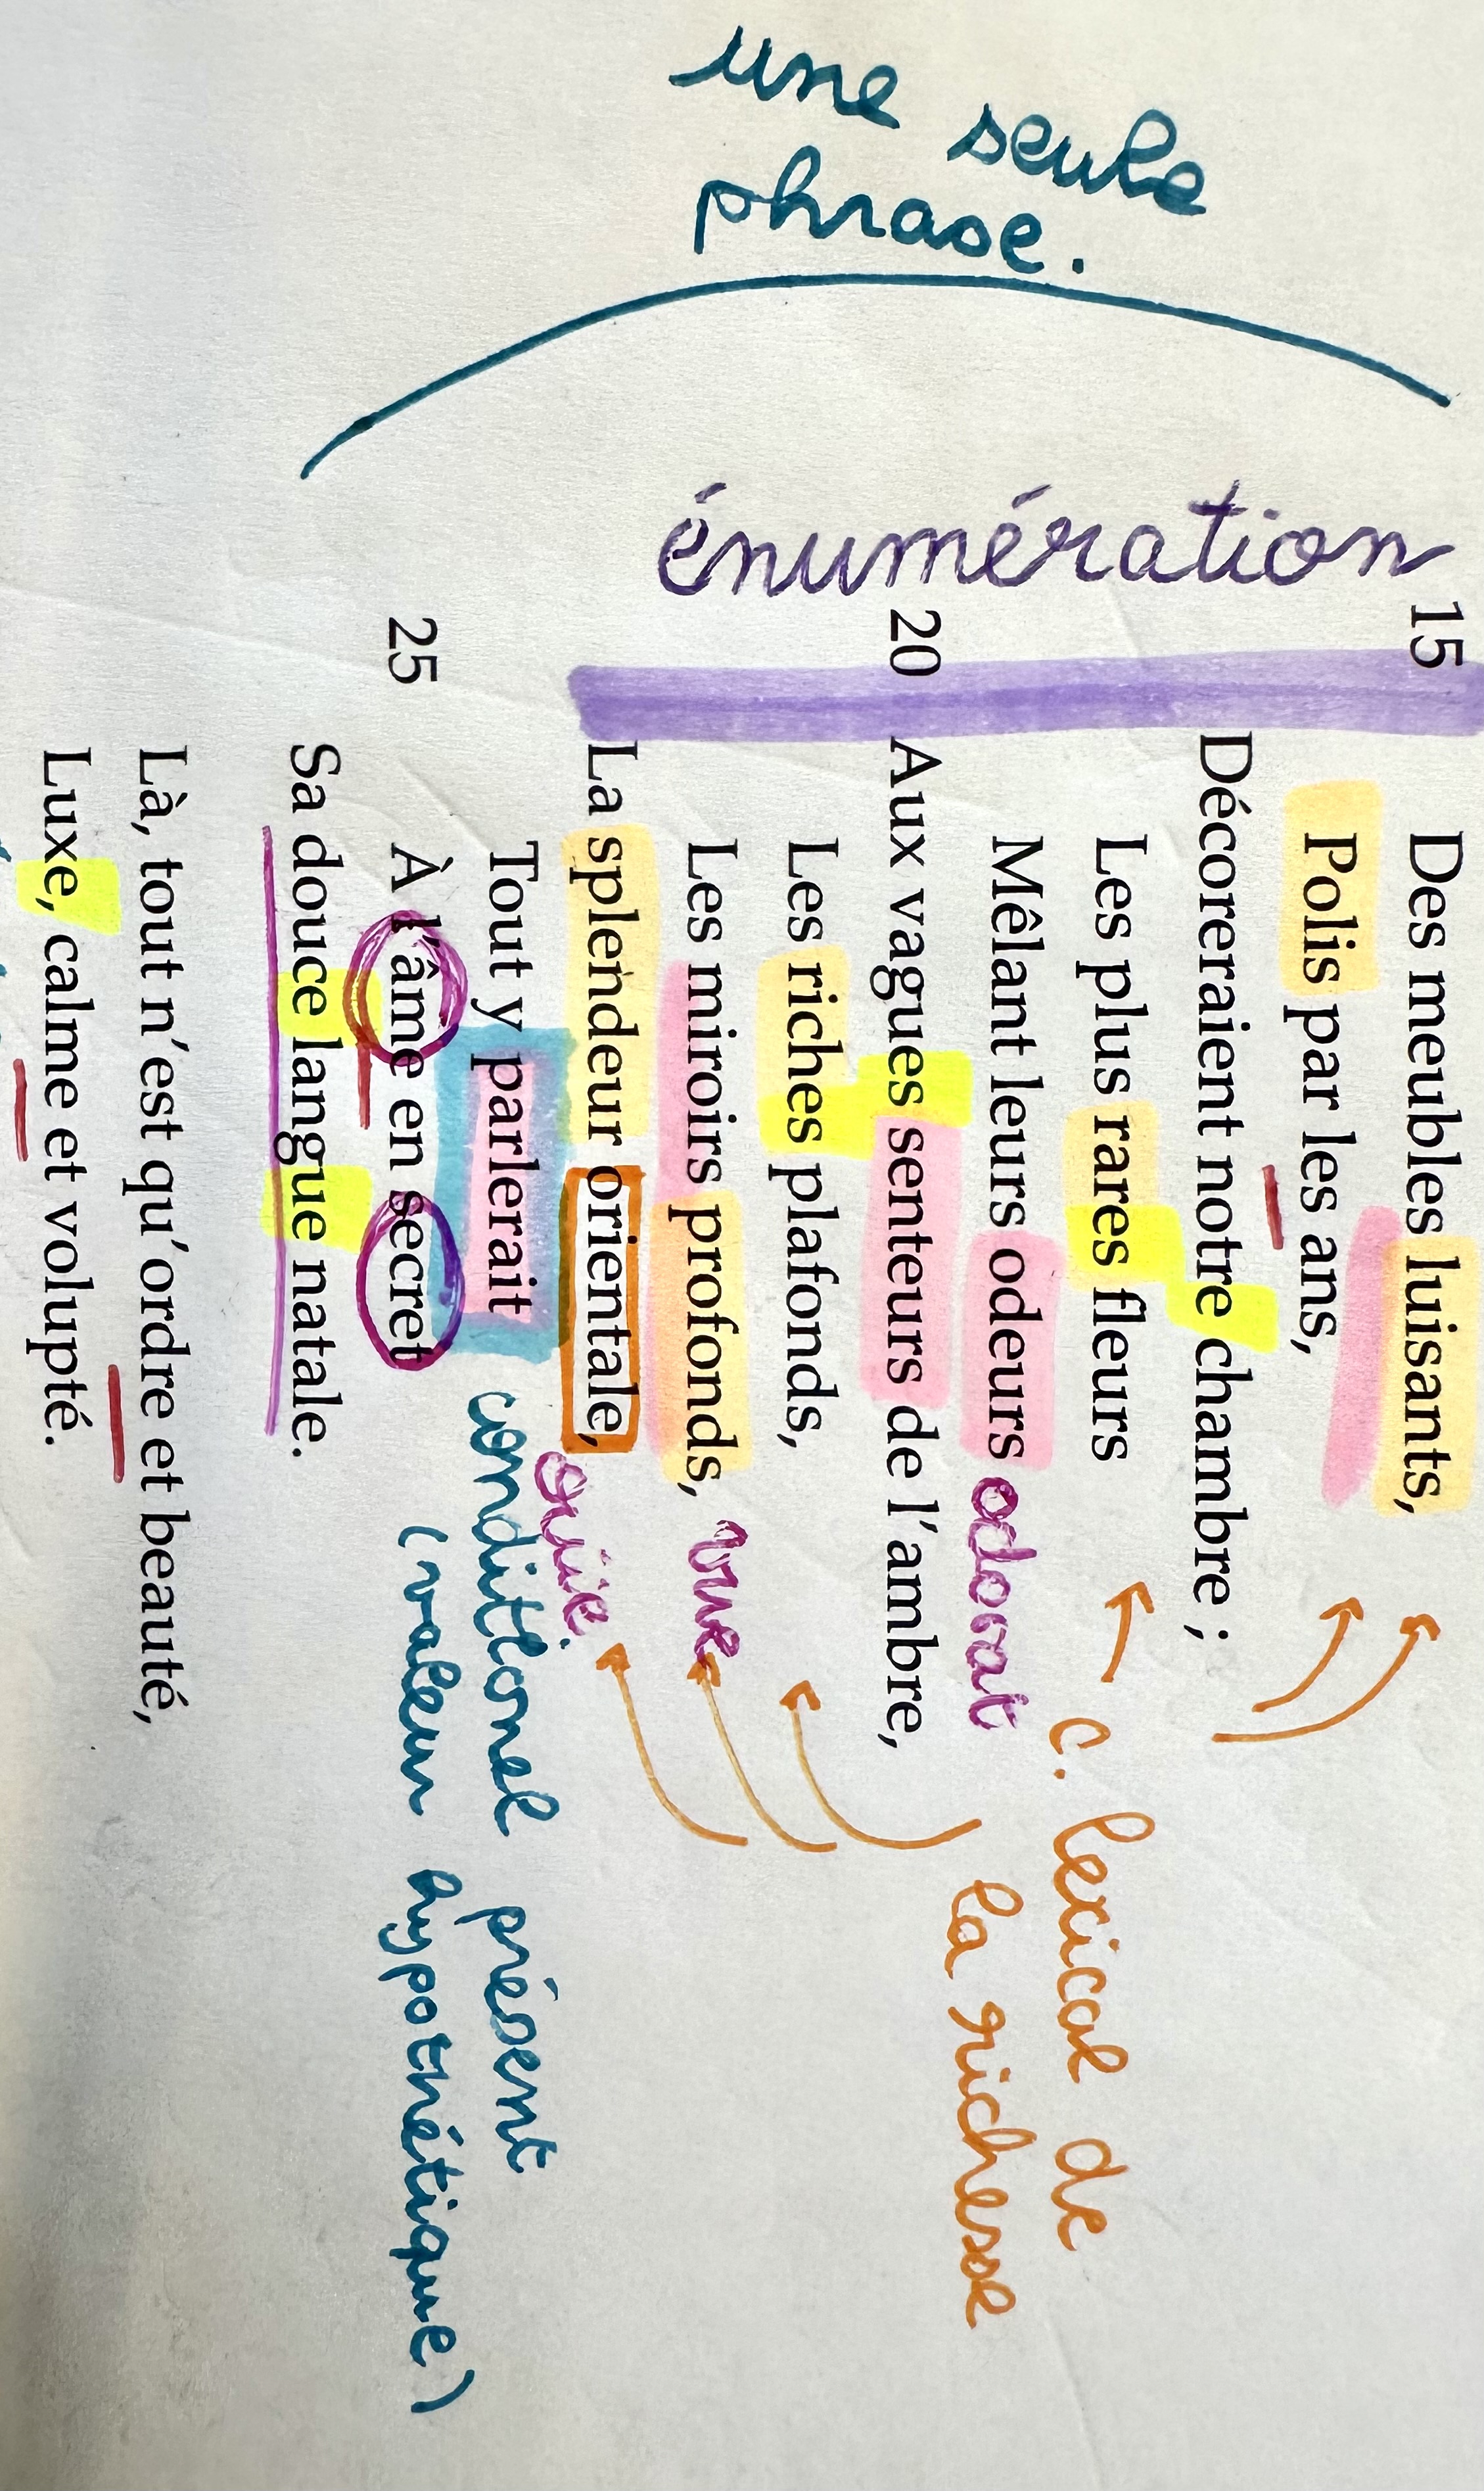 une seule
phrase.
énumération
15 Des meubles luisants,
Polis par les ans,
Décoreraient notre chambre ;
Les plus rares fleurs
Mêlant leurs odeurs odorat
20 Aux vagues senteurs de l'ambre,
Les riches plafonds,
Les miroirs profonds, vue
La splendeur orientale, ouïe
Tout y parlerait conditionel présent
25 À l'âme en secret (valeur hypothétique)
Sa douce langue natale.
Là, tout n'est qu'ordre et beauté,
Luxe, calme et volupté.
c. lexical de
la richesse